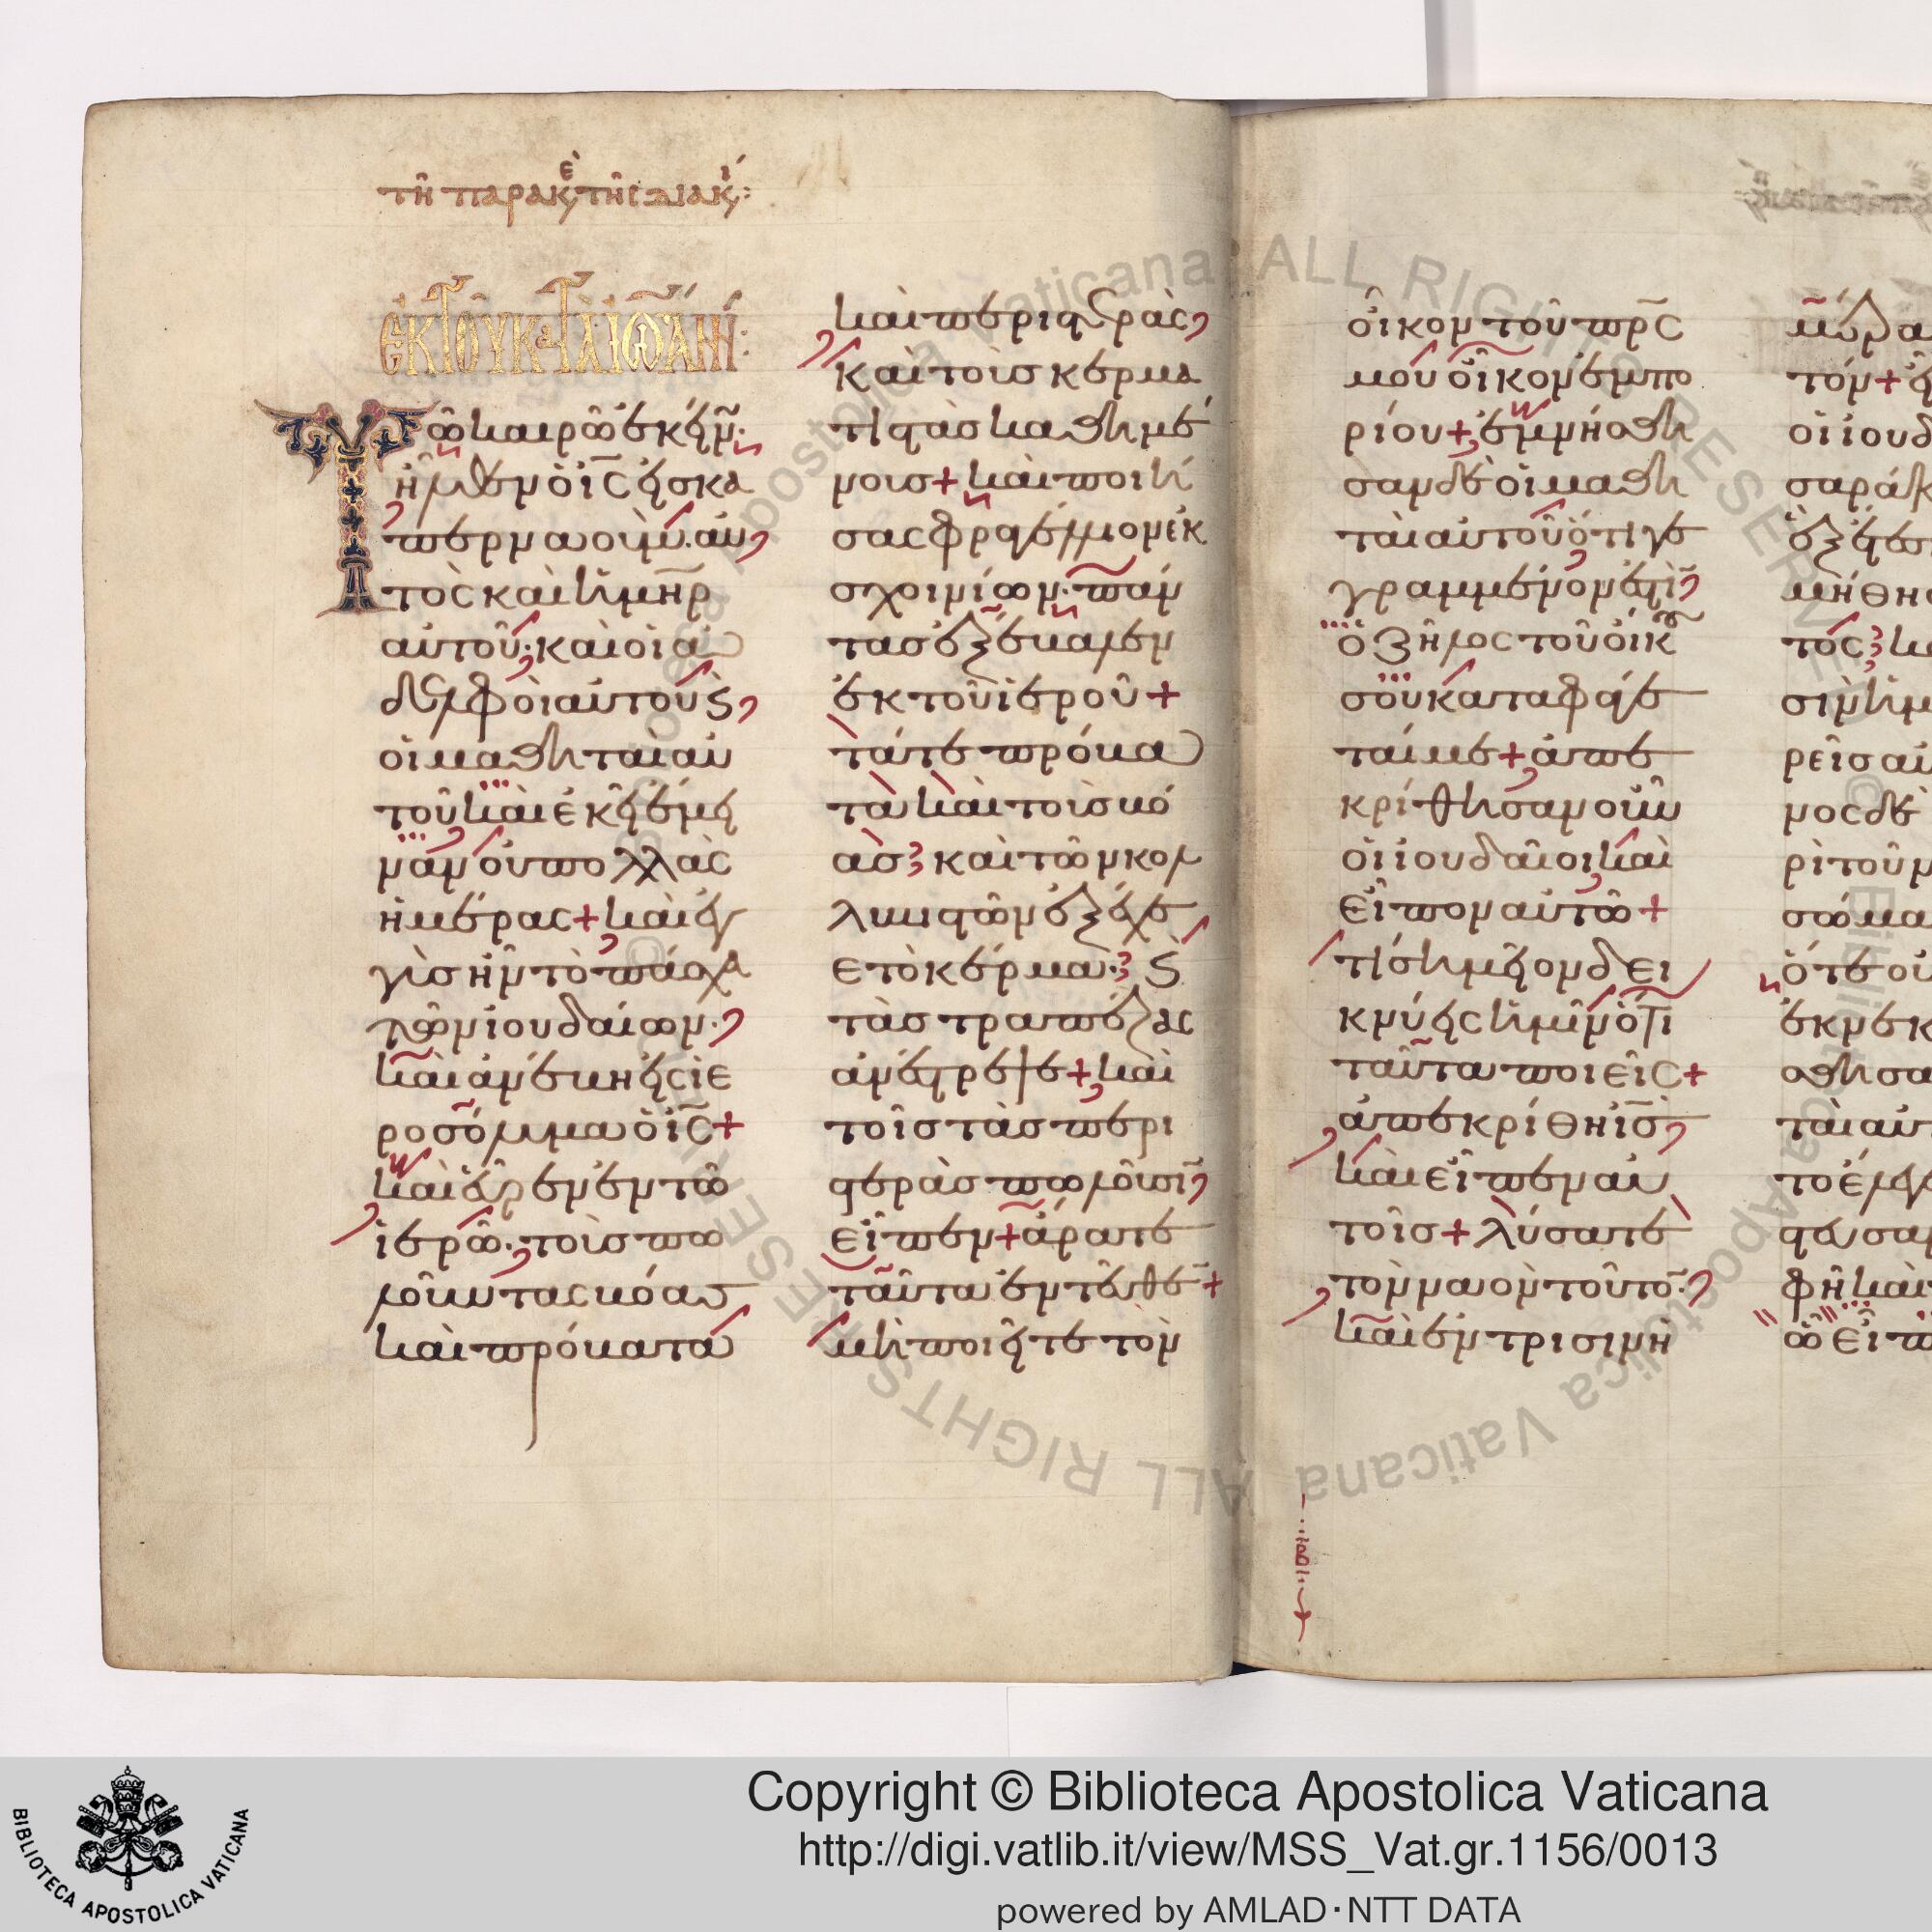 τῆ παρακε τῆς διακι:
ἐκ τοῦ κατὰ ἰωάνν:
Τῶ καιρῶ ἐκείν·
ἦλθεν ὁ ις εἰς κα
περναούμ. αυ
τὸς καὶ ἡ μηρ
αὐτοῦ· καὶ οἱ α
δελφοὶ αὐτοῦ ϛ
οἱ μαθηταὶ αυ
τοῦ καὶ ἐκεῖ ἔμει
ναν οὐ πολλὰς
ἡμέρας + καὶ ἐγ
γὺς ἦν τὸ πάσχα
τῶν ἰουδαίων.
καὶ ἀνέβη εἰς ιε
ροσόλυμα ὁ ις +
καὶ εὗρεν ἐν τῶ
ἱερῶ· τοὺς πω
λοῦντας βόας
καὶ πρόβατα
καὶ περιστερὰς
καὶ τοὺς κερμα
τιστὰς καθημέ
νους + καὶ ποιή
σας φραγέλλιον ἐκ
σχοινίων· πάν
τας ἐξέβαλεν
ἐκ τοῦ ἱεροῦ +
τά τε πρόβα
τα καὶ τοὺς βό
ας καὶ τῶν κολ
λυβιστῶν ἐξέχε
ε τὸ κέρμα· ϛ
τὰς τραπέζας
ἀνέστρεψε + καὶ
τοῖς τὰς περι
στερὰς πωλοῦσι
εἶπεν + ἄρατε
ταῦτα ἐντεῦθε +
μὴ ποιεῖτε τὸν
οἶκον τοῦ πρς
μου οἶκον ἐμπο
ρίου + ἐμνήσθη
σαν δὲ οἱ μαθη
ταὶ αὐτοῦ ὅτι γε
γραμμένον ἐστὶ
ὁ ζῆλος τοῦ οἴκου
σου καταφάγε
ταί με + ἀπε
κρίθησαν οὖν
οἱ ἰουδαῖοι καὶ
εἶπον αὐτῶ +
τί σημεῖον δει
κνύεις ἡμῖν ὅτι
ταῦτα ποιεῖς +
ἀπεκρίθη ὁ ις
καὶ εἶπεν αυ
τοῖς + λύσατε
τὸν ναὸν τοῦτο.
καὶ ἐν τρισιν ἡ
μέρα
τόν +
οἱ ἰουδ
σαρά
ἐξ ἔτεσ
μήθη
τος κ
σιν ἡμ
ρεῖς αυ
νος δὲ
ρὶ τοῦ ν
σώμα
ὅτε οὖ
ἐκ νεκ
σθησα
ταὶ αυ
το ἔλεγ
στευσαν
φῆ καὶ
ὧ εἶπ
Copyright © Biblioteca Apostolica Vaticana
http://digi.vatlib.it/view/MSS_Vat.gr.1156/0013
powered by AMLAD·NTT DATA
BIBLIOTECA APOSTOLICA VATICANA